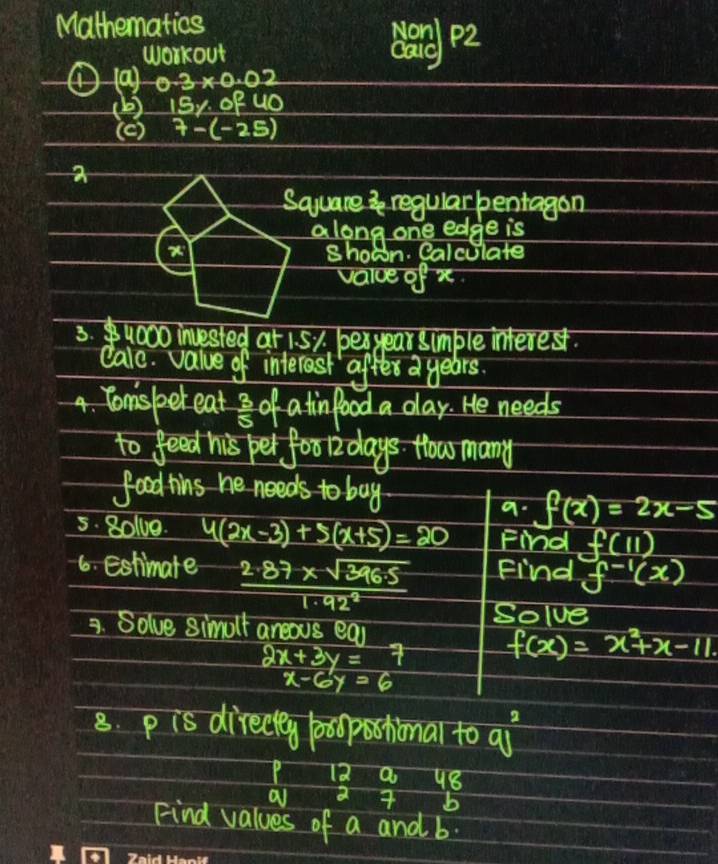 Mathematics
Workout
Non Calc P2
① (a) 0.3 × 0.02
(b) 15% of 40
(c) 7-(-25)
2
x
Square & regular pentagon
along one edge is
shown. Calculate
value of x.
3. $4000 invested at 1.5% per year simple interest.
Calc. value of interest after 2 years.
4. Tom's pet eat 3/5 of a tin food a day. He needs
to feed his pet for 12 days. How many
food tins he needs to buy.
5. Solve. 4(2x-3)+5(x+5)=20
6. Estimate 2.87 × √396.5
1.92²
7. Solve simult aneous eq
2x+3y = 7
x-6y = 6
9. f(x) = 2x-5
Find f(11)
Find f⁻¹(x)
Solve
f(x) = x²+x-11.
8. p is directly proportional to q²
p 12 a 48
q 2 7 b
Find values of a and b.
Zaid Hanif